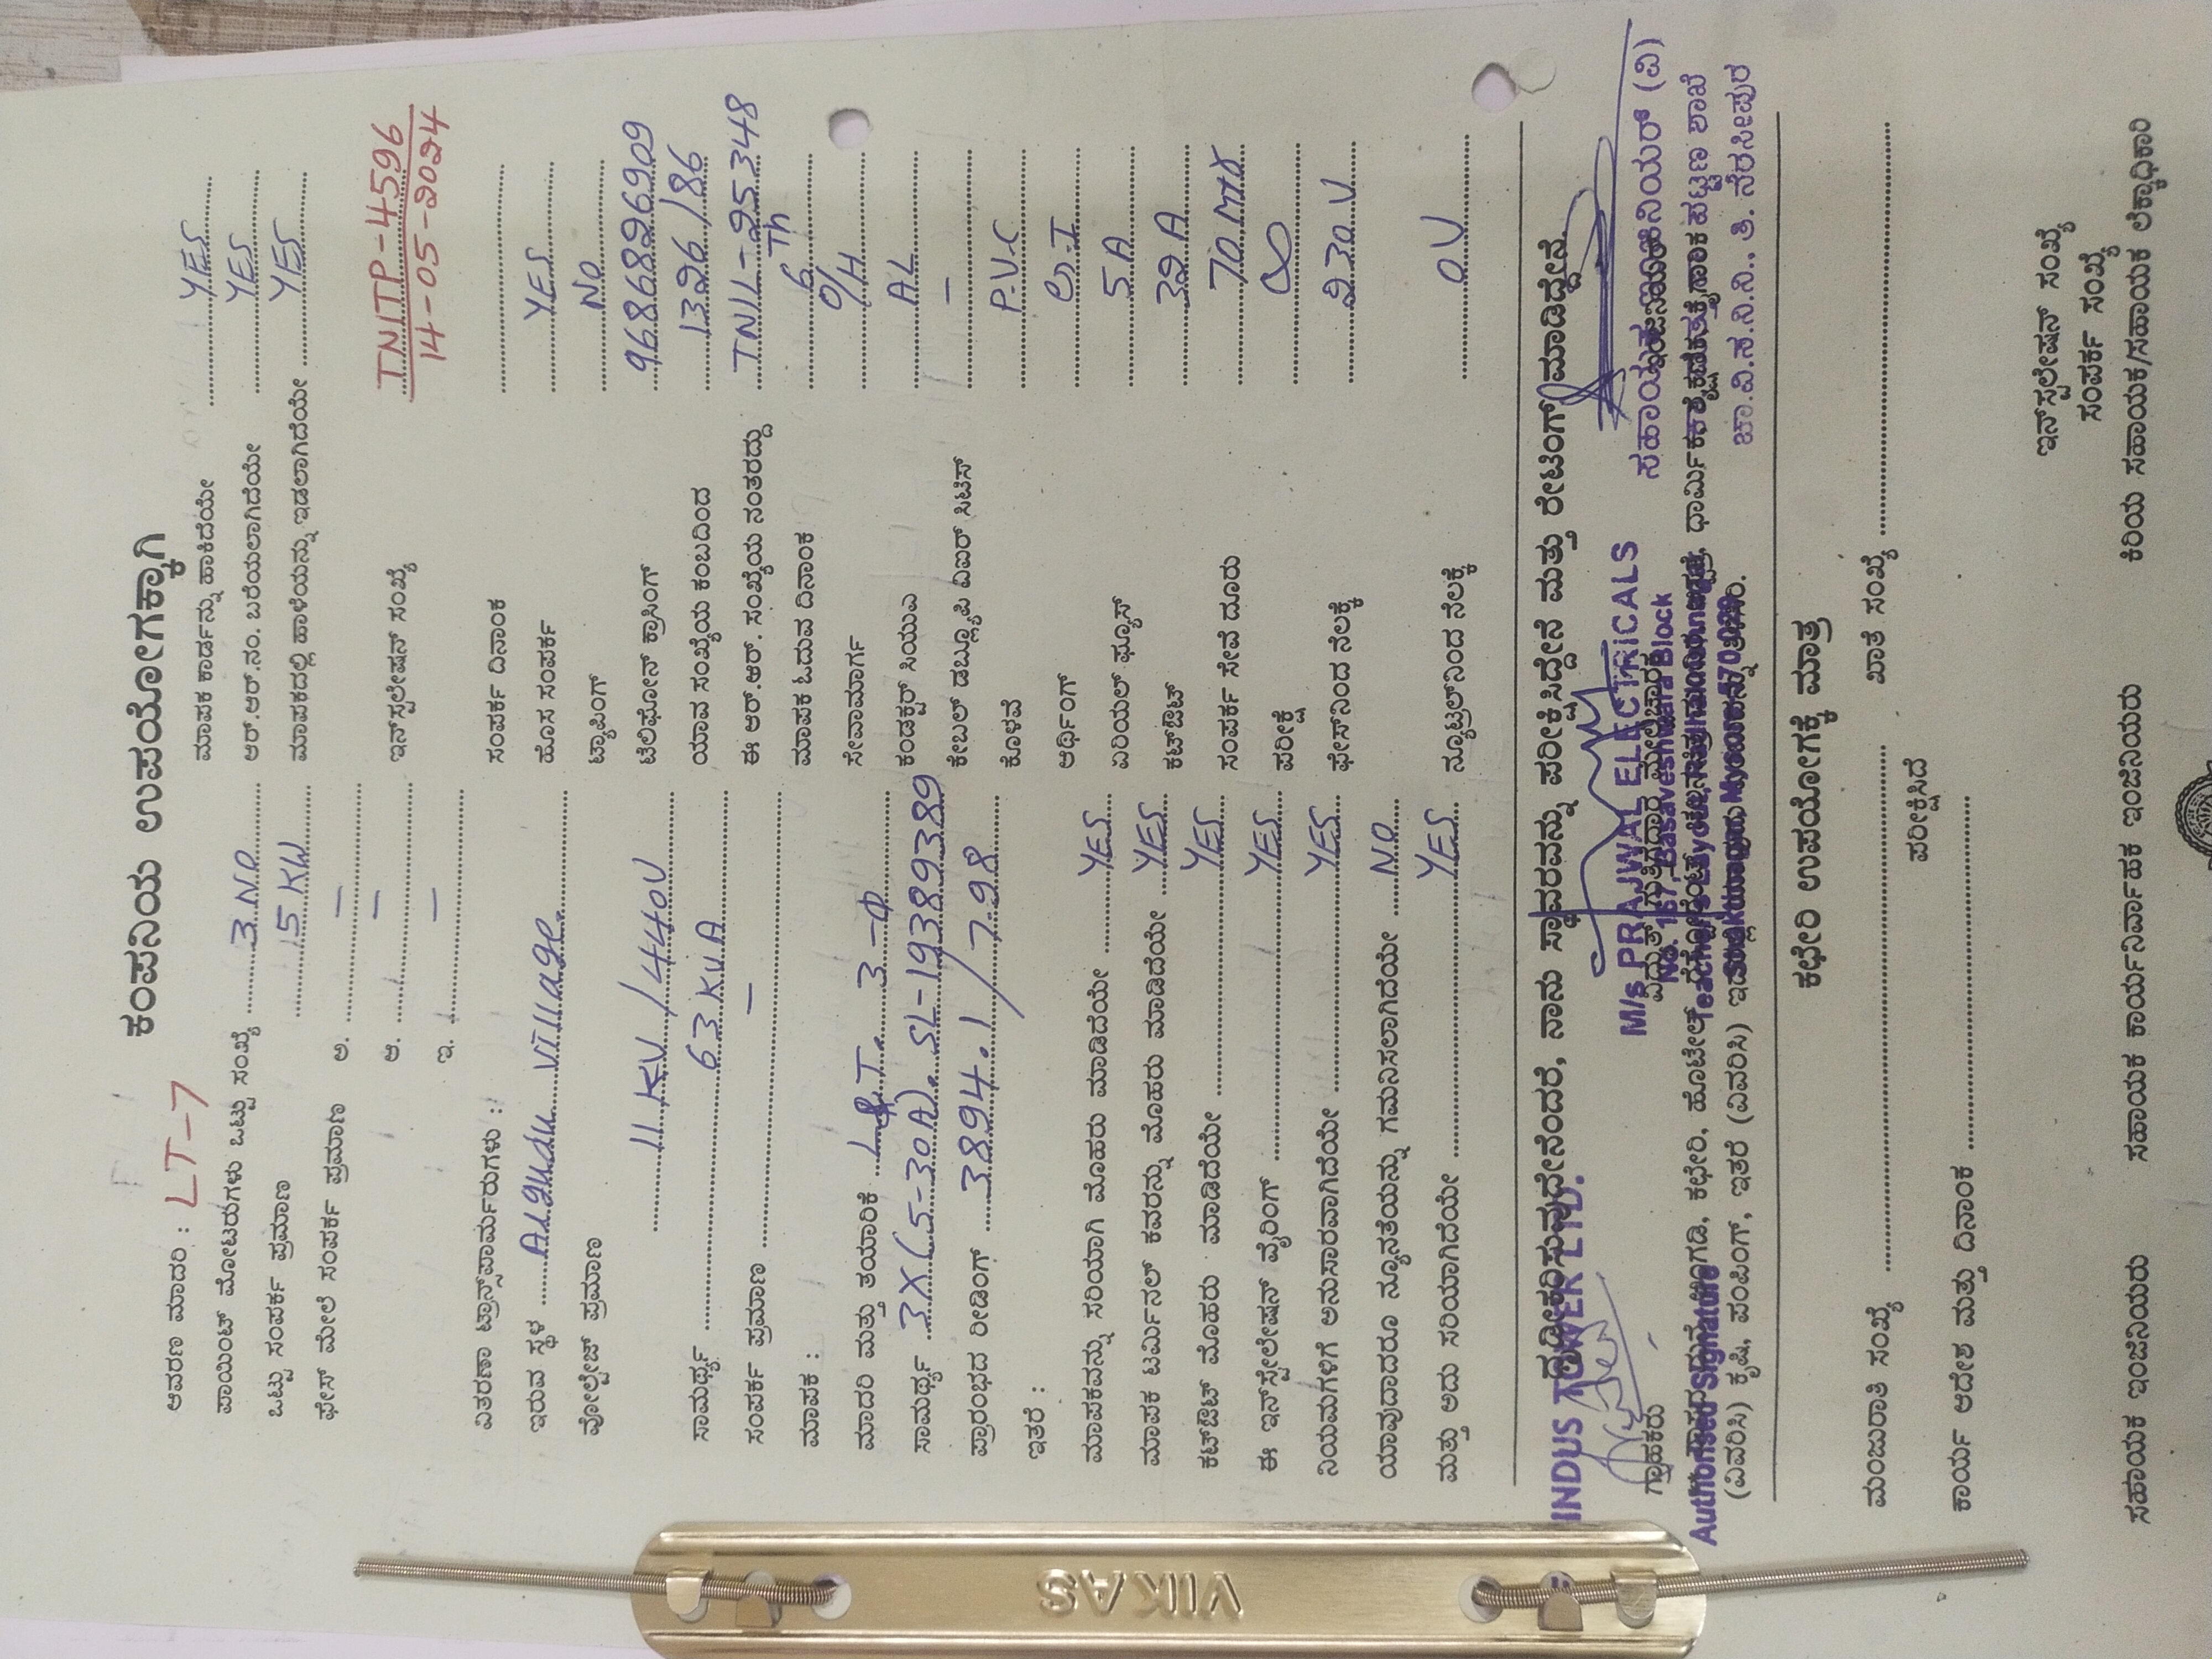 ಕಂಪನಿಯ ಉಪಯೋಗಕ್ಕಾಗಿ
ಆವರಣ ಮಾದರಿ : LT-7
ಪಾಯಿಂಟ್ ಮೋಟರುಗಳು ಒಟ್ಟು ಸಂಖ್ಯೆ 3 No
ಒಟ್ಟು ಸಂಪರ್ಕ ಪ್ರಮಾಣ 15 KW
ಫೇಸ್ ಮೇಲೆ ಸಂಪರ್ಕ ಪ್ರಮಾಣ ಅ. —
ಆ. —
ಇ. —
ವಿತರಣಾ ಟ್ರಾನ್ಸ್‌ಫಾರ್ಮರುಗಳು :
ಇರುವ ಸ್ಥಳ Alagudu Village.
ವೋಲ್ಟೇಜ್ ಪ್ರಮಾಣ
11 KV / 440V
ಸಾಮರ್ಥ್ಯ 63 KVA
ಸಂಪರ್ಕ ಪ್ರಮಾಣ —
ಮಾಪಕ :
ಮಾದರಿ ಮತ್ತು ತಯಾರಿಕೆ L&T. 3-Φ
ಸಾಮರ್ಥ್ಯ 3X(5-30A). SL-19389389
ಪ್ರಾರಂಭದ ರೀಡಿಂಗ್ 3894.1 / 7.98
ಇತರೆ :
ಮಾಪಕವನ್ನು ಸರಿಯಾಗಿ ಮೊಹರು ಮಾಡಿದೆಯೇ YES
ಮಾಪಕ ಟರ್ಮಿನಲ್ ಕವರನ್ನು ಮೊಹರು ಮಾಡಿದೆಯೇ YES
ಕಟ್‌ಔಟ್ ಮೊಹರು ಮಾಡಿದೆಯೇ YES
ಈ ಇನ್‌ಸ್ಟೇಲೇಷನ್ ವೈರಿಂಗ್ YES
ನಿಯಮಗಳಿಗೆ ಅನುಸಾರವಾಗಿದೆಯೇ YES
ಯಾವುದಾದರೂ ನ್ಯೂನತೆಯನ್ನು ಗಮನಿಸಲಾಗಿದೆಯೇ NO
ಮತ್ತು ಅದು ಸರಿಯಾಗಿದೆಯೇ YES
ಮಾಪಕ ಕಾರ್ಡನ್ನು ಹಾಕಿದೆಯೇ YES
ಆರ್.ಆರ್.ನಂ. ಬರೆಯಲಾಗಿದೆಯೇ YES
ಮಾಪಕದಲ್ಲಿ ಹಾಳೆಯನ್ನು ಇಡಲಾಗಿದೆಯೇ YES
ಇನ್‌ಸ್ಟಲೇಷನ್ ಸಂಖ್ಯೆ TNITP-4596
14-05-2024
ಸಂಪರ್ಕ ದಿನಾಂಕ
ಹೊಸ ಸಂಪರ್ಕ YES
ಟ್ಯಾಪಿಂಗ್ NO
ಟೆಲಿಫೋನ್ ಕ್ರಾಸಿಂಗ್ 9686896909
ಯಾವ ಸಂಖ್ಯೆಯ ಕಂಬದಿಂದ 1326/86
ಈ ಆರ್.ಆರ್. ಸಂಖ್ಯೆಯ ನಂತರದ್ದು TNIL-25348
ಮಾಪಕ ಓದುವ ದಿನಾಂಕ 6 Th
ಸೇವಾಮಾರ್ಗ O/H
ಕಂಡಕ್ಟರ್ ಸಿಯುಎ AL
ಕೇಬಲ್ ಡಬ್ಲ್ಯೂಪಿ ವಿಐಆರ್ ಸಿಟಿಸ್ —
ಕೊಳವೆ P.V.C
ಅರ್ಥಿಂಗ್ G.I
ಏರಿಯಲ್ ಫ್ಯೂಸ್ 5A
ಕಟ್‌ಔಟ್ 32A
ಸಂಪರ್ಕ ಸೇವೆ ದೂರು 70 Mtr
ಪರೀಕ್ಷೆ ∞
ಫೇಸ್‌ನಿಂದ ನೆಲಕ್ಕೆ 230 V
ನ್ಯೂಟ್ರಲ್‌ನಿಂದ ನೆಲಕ್ಕೆ 0 V
ದೃಢೀಕರಿಸುವುದೇನೆಂದರೆ, ನಾನು ಸ್ಥಾವರವನ್ನು ಪರೀಕ್ಷಿಸಿದ್ದೇನೆ ಮತ್ತು ರೇಟಿಂಗ್ ಮಾಡಿದ್ದೇನೆ.
INDUS TOWER LTD.
ಗ್ರಾಹಕರು
Authorised Signature
M/s PRAJWAL ELECTRICALS
No. 167, Basaveshwara Block
ವಿದ್ಯುತ್ ಗುತ್ತಿಗೆದಾರ
ಸಹಾಯಕ ಇಂಜಿನಿಯರ್ (ವಿ)
ಚಾ.ವಿ.ಸ.ನಿ.ನಿ., ತಿ. ನರಸೀಪುರ
ಅಂಗಡಿ, ಕಛೇರಿ, ಹೋಟೇಲ್
(ವಿವರಿಸಿ) ಕೃಷಿ, ಪಂಪಿಂಗ್, ಇತರೆ (ವಿವರಿಸಿ)
ಕಛೇರಿ ಉಪಯೋಗಕ್ಕೆ ಮಾತ್ರ
ಮಂಜುರಾತಿ ಸಂಖ್ಯೆ ಖಾತೆ ಸಂಖ್ಯೆ
ಪರೀಕ್ಷಿಸಿದೆ
ಕಾರ್ಯ ಆದೇಶ ಮತ್ತು ದಿನಾಂಕ
ಇನ್‌ಸ್ಟಲೇಷನ್ ಸಂಖ್ಯೆ
ಸಂಪರ್ಕ ಸಂಖ್ಯೆ
ಸಹಾಯಕ ಇಂಜಿನಿಯರು ಸಹಾಯಕ ಕಾರ್ಯನಿರ್ವಾಹಕ ಇಂಜಿನಿಯರು ಕಿರಿಯ ಸಹಾಯಕ/ಸಹಾಯಕ ಲೆಕ್ಕಾಧಿಕಾರಿ
VIKAS